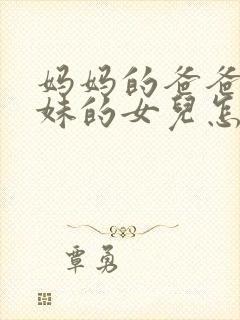 妈妈的爸爸
妹的女兒怎
覃勇